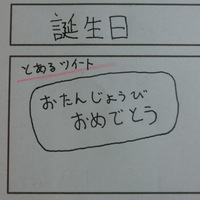 誕生日
とあるツイート
おたんじょうび
おめでとう